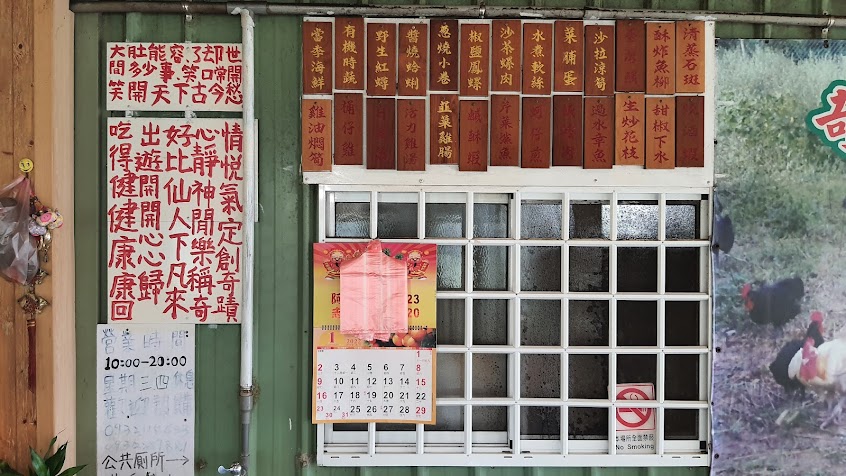 大肚能容了却世
間多少事.笑口常開
笑開天下古今愁
情悦氣定創奇蹟
心靜神閒樂稱奇
好比仙人下凡來
出遊開開心心歸
吃得健健康康回
營業時間
10:00-20:00
星期三四休息
公共廁所→
當季海鮮
有機時蔬
野生紅蟳
醬燒蛤蜊
蔥燒小卷
椒鹽鳳螺
沙茶螺肉
水煮軟絲
菜脯蛋
沙拉涼筍
酥炸魚柳
清蒸石斑
雞油燜筍
活力雞湯
韮菜雞腸
鹹酥蝦
過水章魚
生炒花枝
甜椒下水
23
20
1
1
2 3 4 5 6 7 8
9 10 11 12 13 14 15
16 17 18 19 20 21 22
23 24 25 26 27 28 29
30 31
本場所全面禁菸
No Smoking